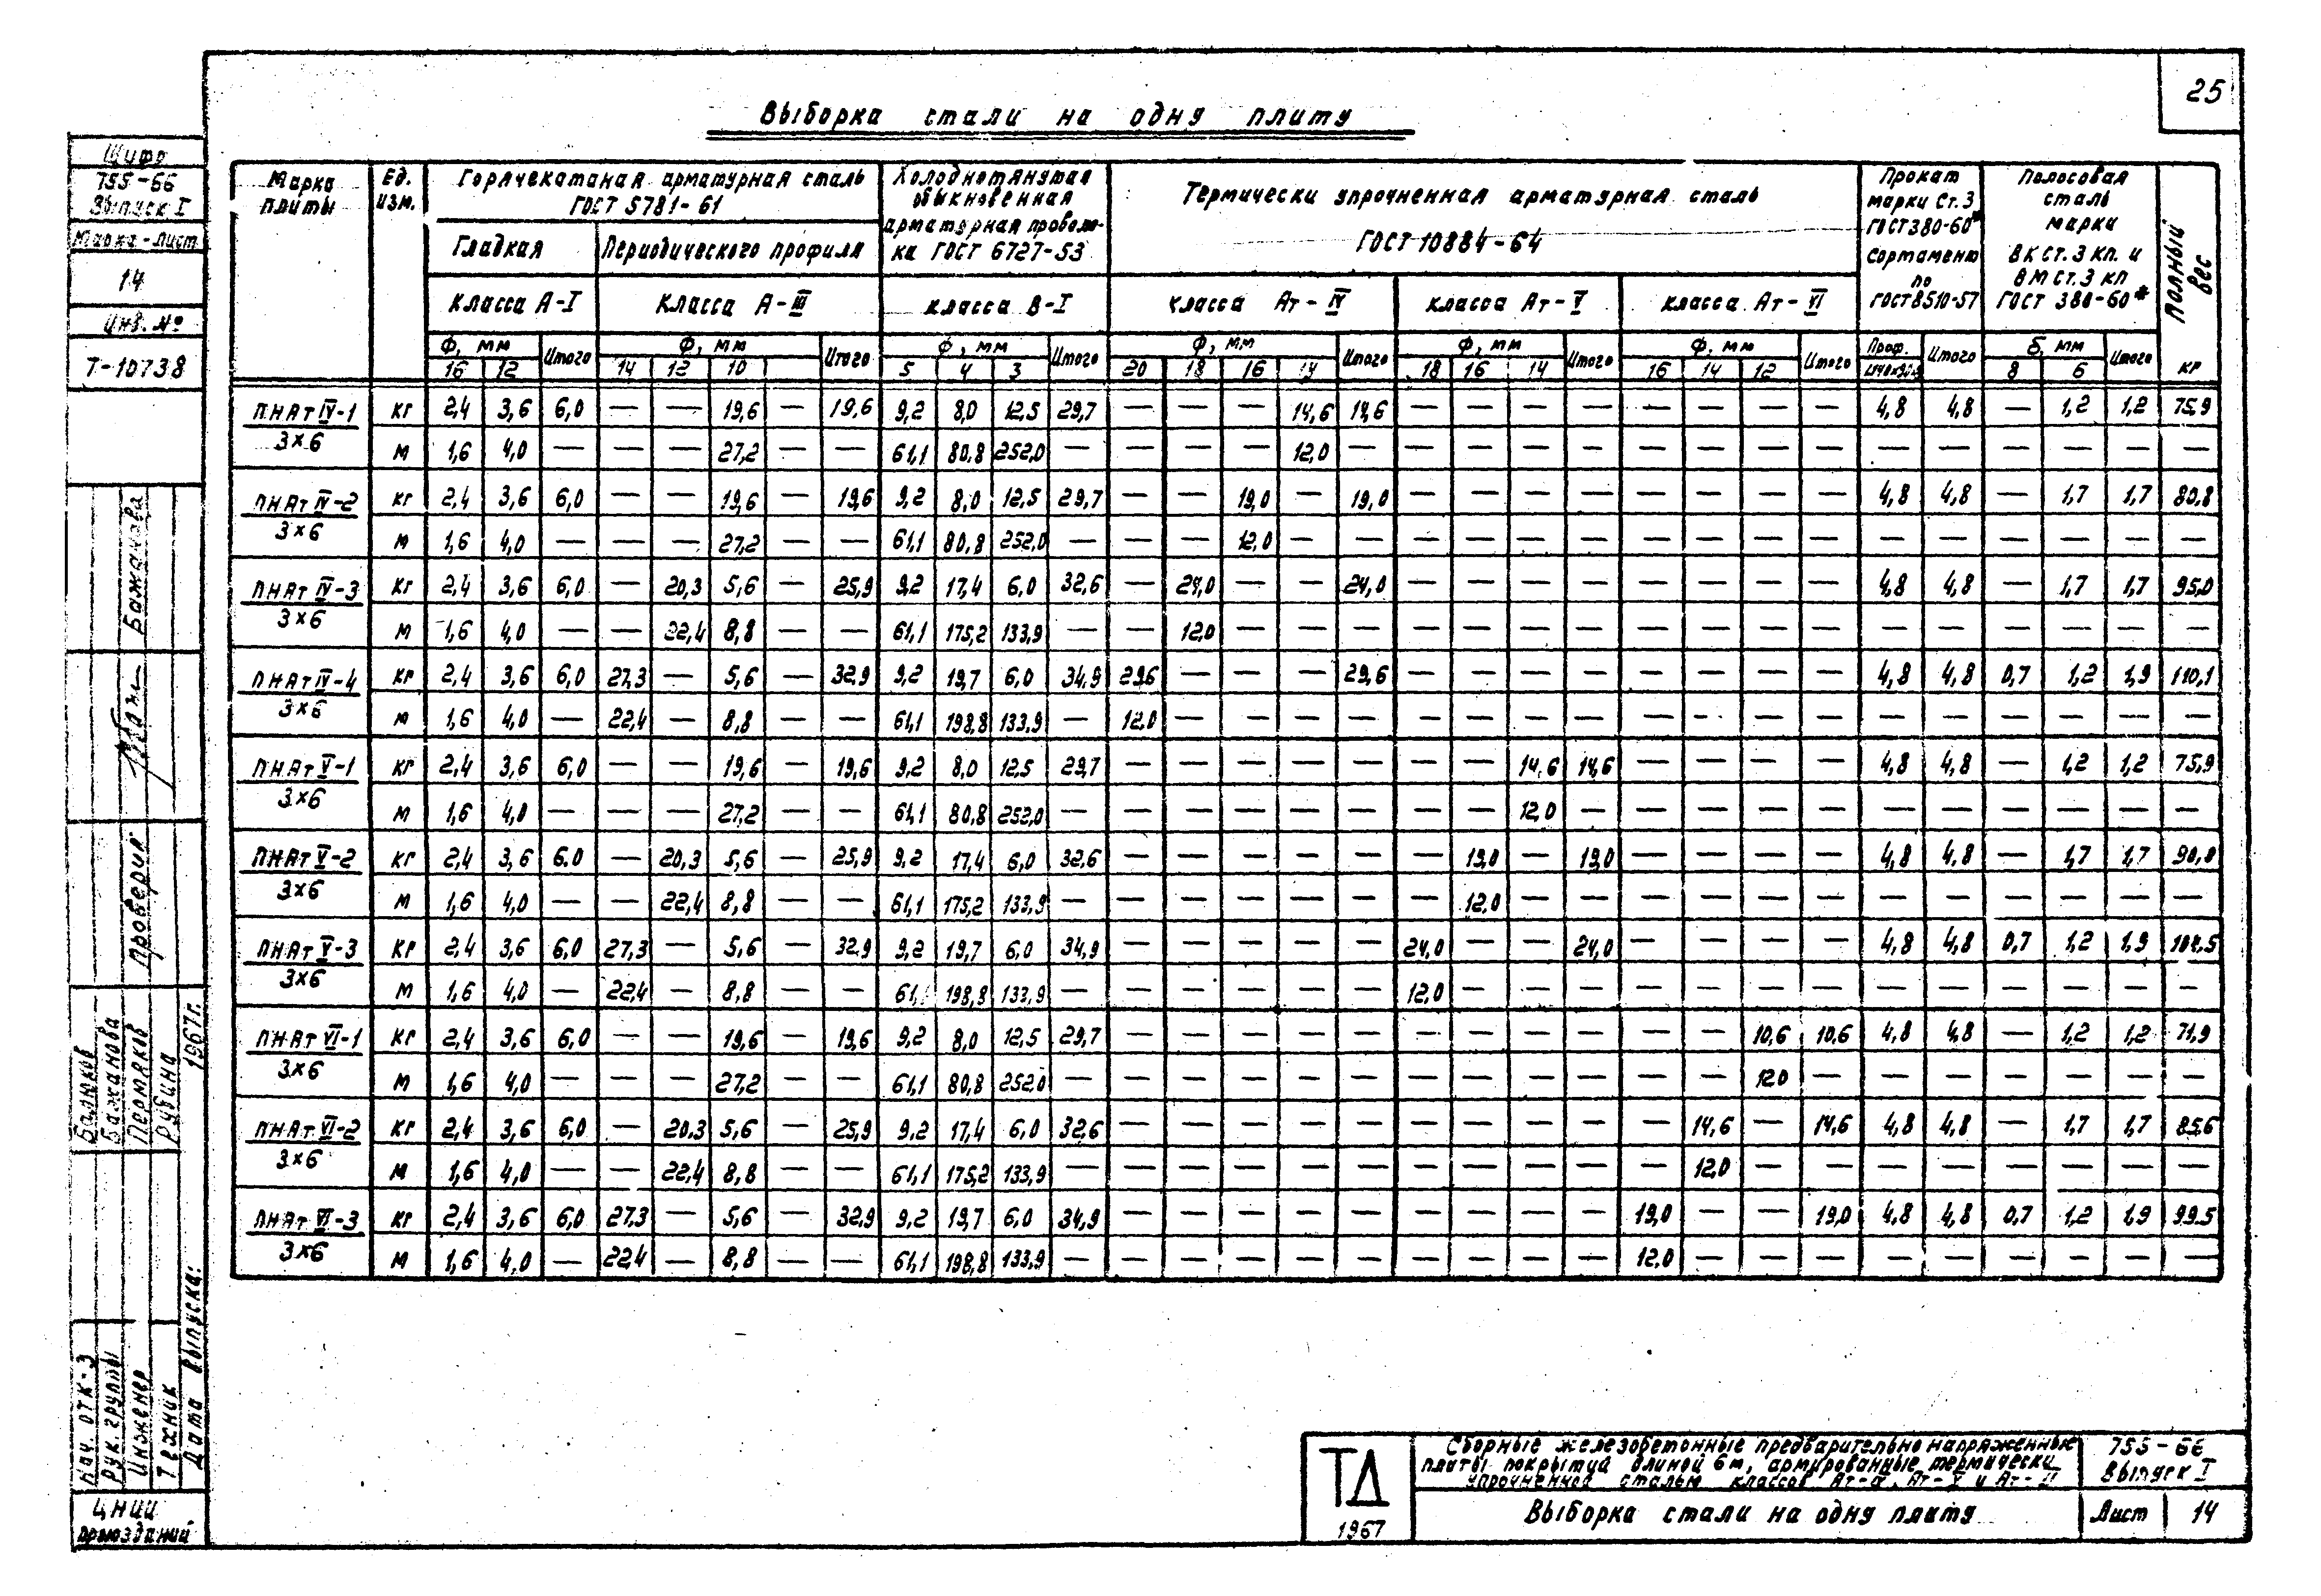 25
Выборка стали на одну плиту
Шифр
755-66
Выпуск I
Марка-лист
14
Инв. №
Т-10738
Марка плиты
Ед. изм.
Горячекатаная арматурная сталь
ГОСТ 5781-61
Гладкая
Периодического профиля
класса А-I
класса А-III
Холоднотянутая
обыкновенная
арматурная проволо-
ка ГОСТ 6727-53
класса В-I
Термически упрочненная арматурная сталь
ГОСТ 10884-64
класса Ат-IV
класса Ат-V
класса Ат-VI
Прокат
марки Ст.3
ГОСТ380-60*
Сортамент
по
ГОСТ8510-57
Полосовая
сталь
марки
ВК ст.3 кп. и
ВМ ст.3 кп
ГОСТ 380-60*
Полный вес
Ф, мм Итого Ф, мм Итого Ф, мм Итого Ф, мм Итого Ф, мм Итого Ф, мм Итого Проф. Итого δ, мм Итого кг
16 12 14 12 10 5 4 3 20 18 16 14 18 16 14 16 14 12 8 6
ПНАтIV-1 кг 2,4 3,6 6,0 — — 19,6 — 19,6 9,2 8,0 12,5 29,7 — — — 14,6 14,6 — — — — — — — — 4,8 4,8 — 1,2 1,2 75,9
3×6 м 1,6 4,0 — — — 27,2 — — 61,1 80,8 252,0 — — — — 12,0 — — — — — — — — — — — — — — —
ПНАтIV-2 кг 2,4 3,6 6,0 — — 19,6 — 19,6 9,2 8,0 12,5 29,7 — — 19,0 — 19,0 — — — — — — — — 4,8 4,8 — 1,7 1,7 80,8
3×6 м 1,6 4,0 — — — 27,2 — — 61,1 80,8 252,0 — — — 12,0 — — — — — — — — — — — — — — — —
ПНАтIV-3 кг 2,4 3,6 6,0 — 20,3 5,6 — 25,9 9,2 17,4 6,0 32,6 — 24,0 — — 24,0 — — — — — — — — 4,8 4,8 — 1,7 1,7 95,0
3×6 м 1,6 4,0 — — 22,4 8,8 — — 61,1 175,2 133,9 — — 12,0 — — — — — — — — — — — — — — — — —
ПНАтIV-4 кг 2,4 3,6 6,0 27,3 — 5,6 — 32,9 9,2 19,7 6,0 34,9 29,6 — — — 29,6 — — — — — — — — 4,8 4,8 0,7 1,2 1,9 110,1
3×6 м 1,6 4,0 — 22,4 — 8,8 — — 61,1 198,8 133,9 — 12,0 — — — — — — — — — — — — — — — — — —
ПНАтV-1 кг 2,4 3,6 6,0 — — 19,6 — 19,6 9,2 8,0 12,5 29,7 — — — — — — — 14,6 14,6 — — — — 4,8 4,8 — 1,2 1,2 75,9
3×6 м 1,6 4,0 — — — 27,2 — — 61,1 80,8 252,0 — — — — — — — — 12,0 — — — — — — — — — — —
ПНАтV-2 кг 2,4 3,6 6,0 — 20,3 5,6 — 25,9 9,2 17,4 6,0 32,6 — — — — — — 19,0 — 19,0 — — — — 4,8 4,8 — 1,7 1,7 90,0
3×6 м 1,6 4,0 — — 22,4 8,8 — — 61,1 175,2 133,9 — — — — — — — 12,0 — — — — — — — — — — — —
ПНАтV-3 кг 2,4 3,6 6,0 27,3 — 5,6 — 32,9 9,2 19,7 6,0 34,9 — — — — — 24,0 — — 24,0 — — — — 4,8 4,8 0,7 1,2 1,9 104,5
3×6 м 1,6 4,0 — 22,4 — 8,8 — — 61,1 198,8 133,9 — — — — — — 12,0 — — — — — — — — — — — — —
ПНАтVI-1 кг 2,4 3,6 6,0 — — 19,6 — 19,6 9,2 8,0 12,5 29,7 — — — — — — — — — — — 10,6 10,6 4,8 4,8 — 1,2 1,2 71,9
3×6 м 1,6 4,0 — — — 27,2 — — 61,1 80,8 252,0 — — — — — — — — — — — — 12,0 — — — — — — —
ПНАтVI-2 кг 2,4 3,6 6,0 — 20,3 5,6 — 25,9 9,2 17,4 6,0 32,6 — — — — — — — — — — 14,6 — 14,6 4,8 4,8 — 1,7 1,7 85,6
3×6 м 1,6 4,0 — — 22,4 8,8 — — 61,1 175,2 133,9 — — — — — — — — — — — 12,0 — — — — — — — —
ПНАтVI-3 кг 2,4 3,6 6,0 27,3 — 5,6 — 32,9 9,2 19,7 6,0 34,9 — — — — — — — — — 19,0 — — 19,0 4,8 4,8 0,7 1,2 1,9 99,5
3×6 м 1,6 4,0 — 22,4 — 8,8 — — 61,1 198,8 133,9 — — — — — — — — — — 12,0 — — — — — — — — —
Бажанова
проверил
Баликов
Бажанова
Пермяков
Рубина
1967г.
Нач. ОТК-3
Рук. группы
Инженер
Техник
Дата выпуска:
ЦНИИ
промзданий
ТД
1967
Сборные железобетонные предварительно напряженные
плиты покрытий длиной 6м, армированные термически
упрочненной сталью классов Ат-IV, Ат-V и Ат-VI
755-66
Выпуск I
Выборка стали на одну плиту
Лист 14